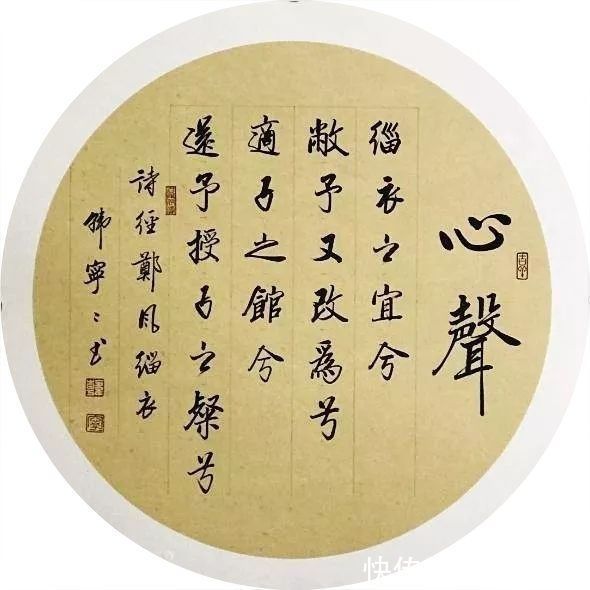 心聲
緇衣之宜兮
敝予又改為兮
適子之館兮
還予授子之粲兮
詩經鄭風緇衣
寧寧書
快传